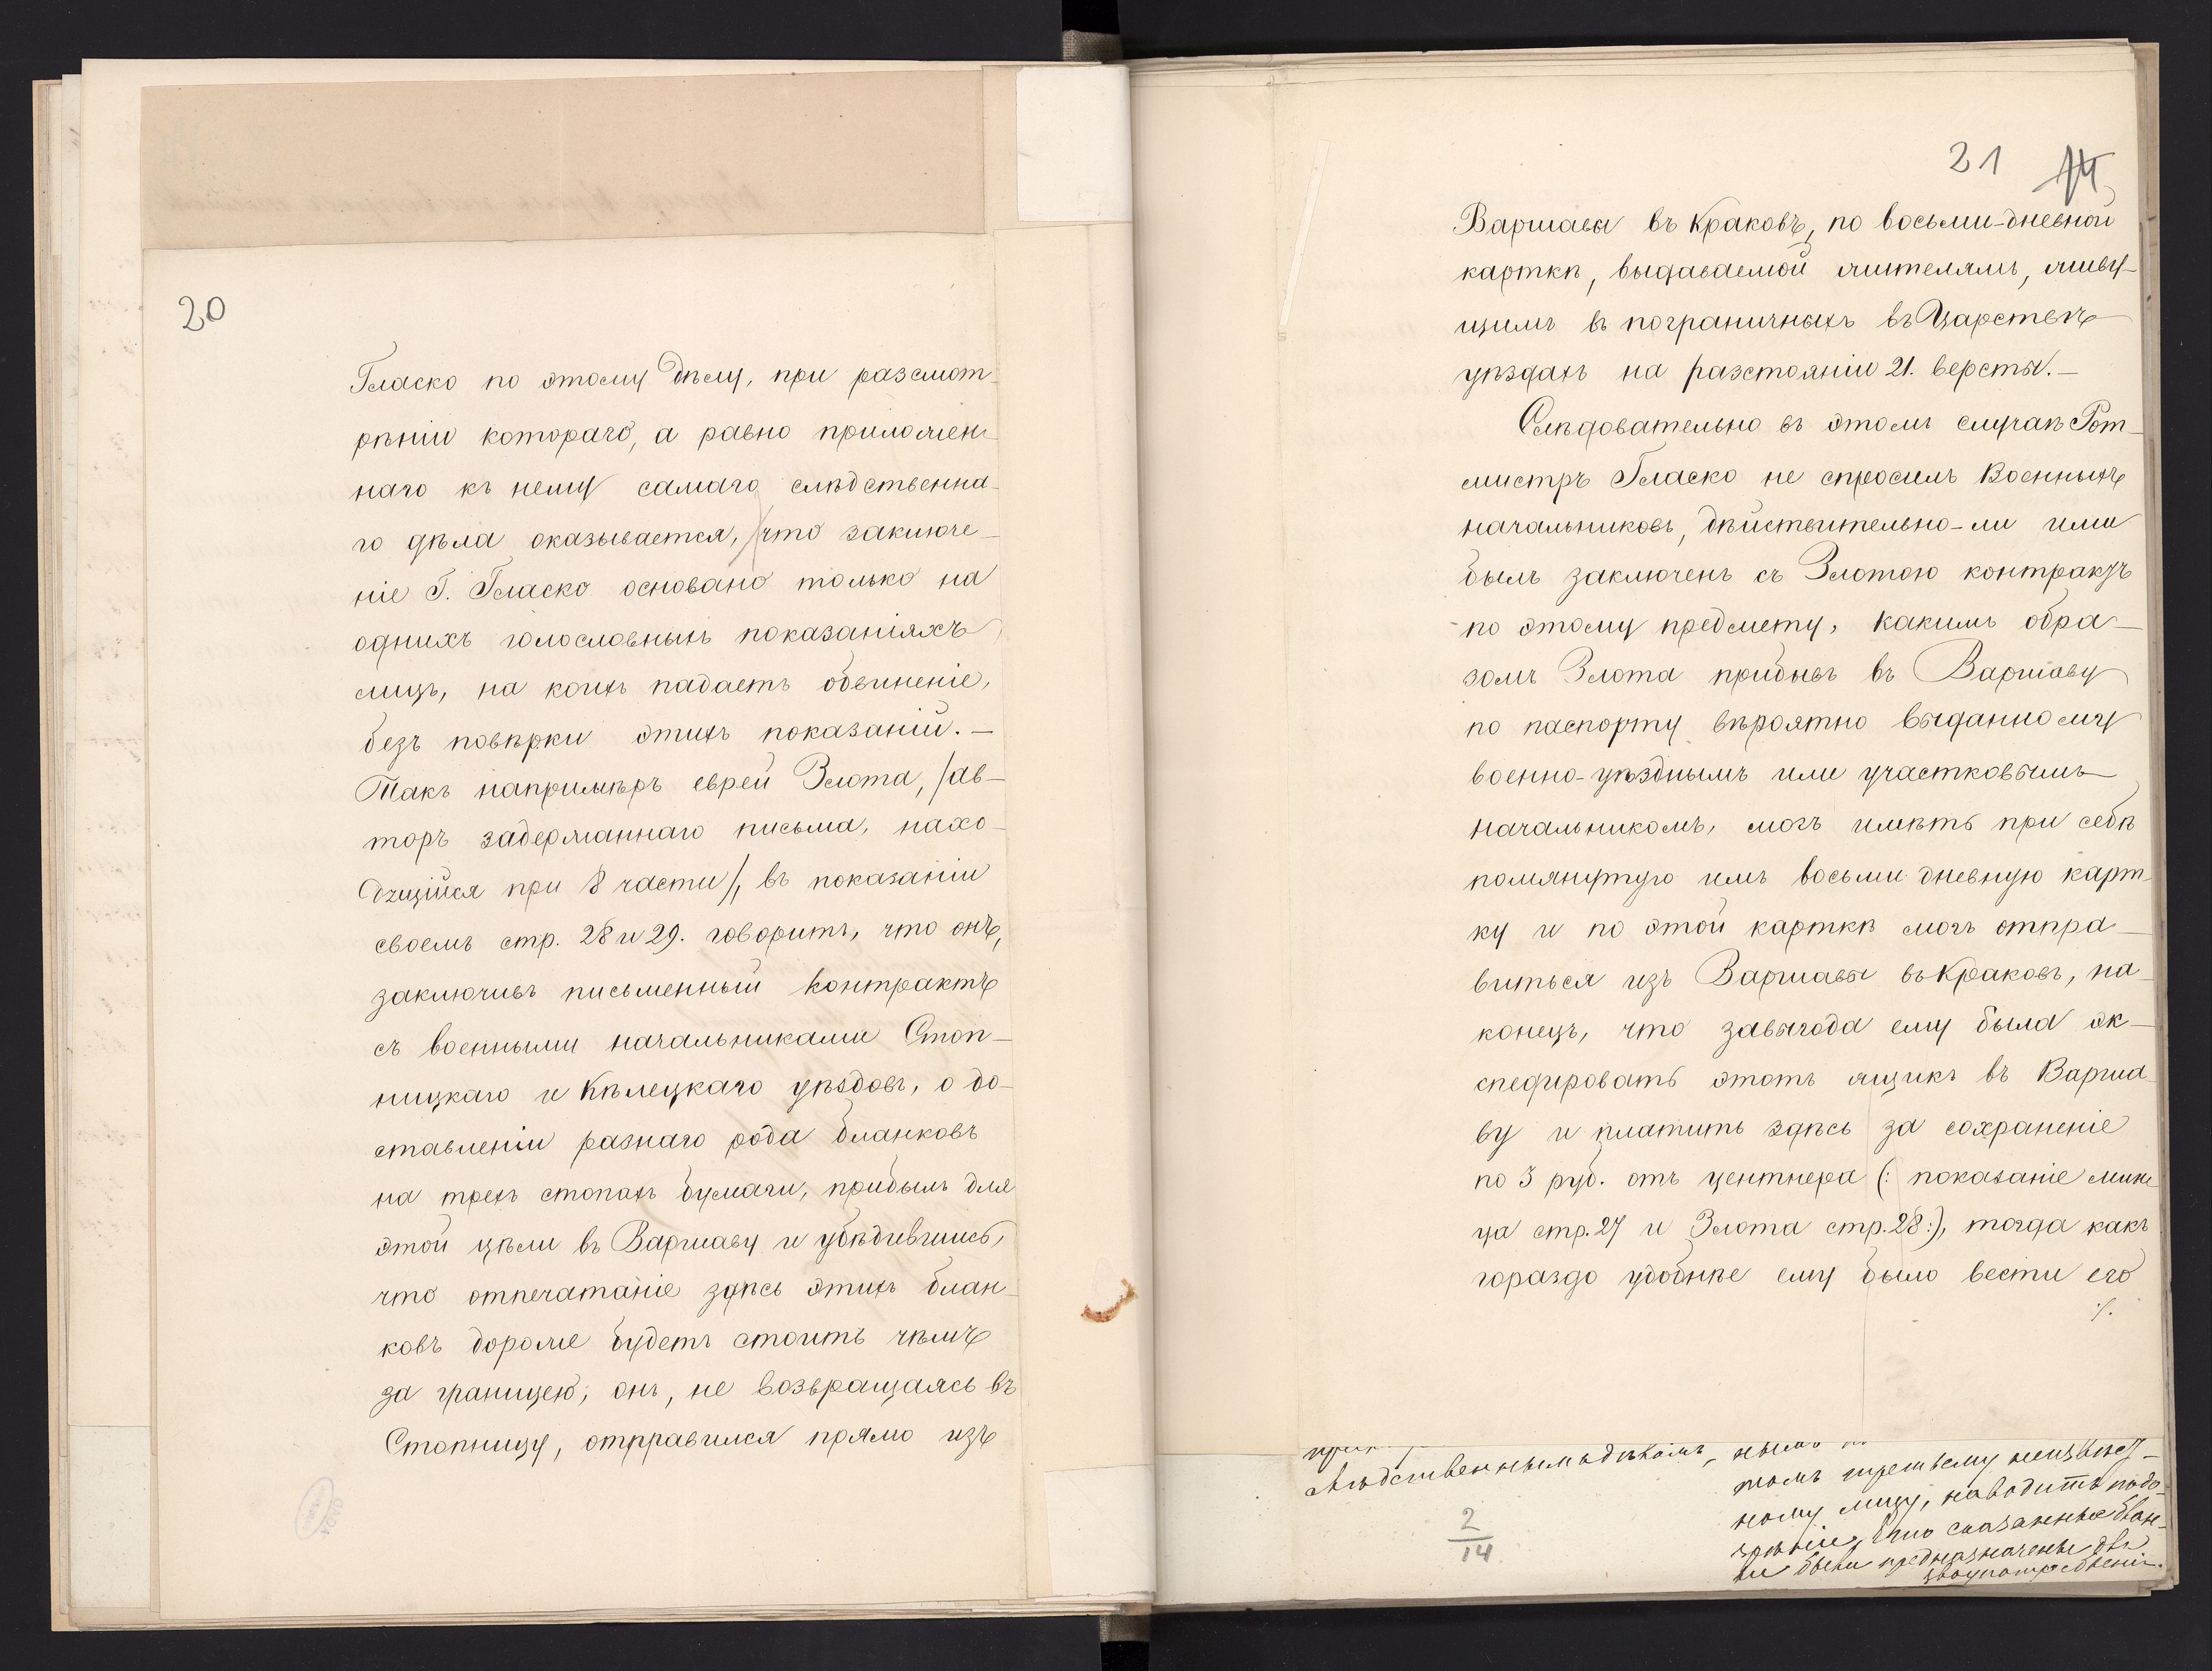 20
Гласко по этому дѣлу, при разсмот-
рѣніи котораго, а равно приложен-
наго къ нему самаго слѣдственна-
го дѣла оказывается, что заключе-
ніе Г. Гласко основано только на
однихъ голословныхъ показаніяхъ
лицъ, на коихъ падаетъ обвиненіе,
безъ повѣрки этихъ показаній. —
Такъ напримѣръ еврей Злота, /ав-
торъ задержаннаго письма, нахо-
дящійся при 8 части/, въ показаніи
своемъ стр. 28 и 29. говоритъ, что онъ,
заключивъ письменный контрактъ
съ военными начальниками Стоп-
ницкаго и Кѣлецкаго уѣздовъ, о до-
ставленіи разнаго рода бланковъ
на трехъ стопахъ бумаги, прибылъ для
этой цѣли въ Варшаву и убѣдившись,
что отпечатаніе здѣсь этихъ блан-
ковъ дороже будетъ стоить чѣмъ
за границею; онъ, не возвращаясь въ
Стопницу, отправился прямо изъ
21 14
Варшавы въ Краковъ, по восьми-дневной
карткѣ, выдаваемой жителямъ, живу-
щимъ въ пограничныхъ въ Царствѣ
уѣздахъ на разстояніи 21. версты. —
Слѣдовательно въ этомъ случаѣ Рот-
мистръ Гласко не спросилъ Военныхъ
начальниковъ, дѣйствительно-ли ими
былъ заключенъ съ Злотою контрактъ
по этому предмету, какимъ обра-
зомъ Злота прибывъ въ Варшаву
по паспорту вѣроятно выданному
военно-уѣзднымъ или участковымъ
начальникомъ, могъ имѣть при себѣ
помянутую имъ восьми дневную карт-
ку и по этой карткѣ могъ отпра-
виться изъ Варшавы въ Краковъ, на-
конецъ, что завыгода ему была эк-
спедировать этотъ ящикъ въ Варша-
ву и платить здѣсь за сохраненіе
по 3 руб. отъ центнера (: показаніе Мин-
ца стр. 27 и Злота стр. 28:), тогда какъ
гораздо удобнѣе ему было вести его
./.
слѣдственнымъ дѣломъ,
2
14
томъ третьему неизвѣст-
ному лицу, наводитъ подо-
зрѣніе, что сказанные блан-
ки были предназначены для
злоупотребленія.